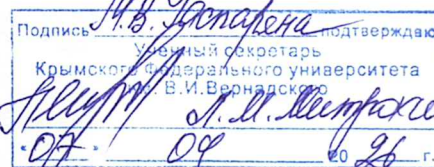 Подпись М.В. Гаспарена подтверждаю
Ученый секретарь
Крымского федерального университета
им. В.И.Вернадского
Л.М. Митрохи
"07" 04 2026 г.